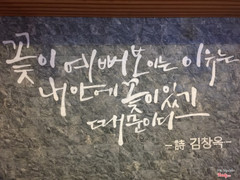 꽃이 예뻐보이는 이유는
내 안에 꽃이 있기
때문이다
-詩 김창옥-